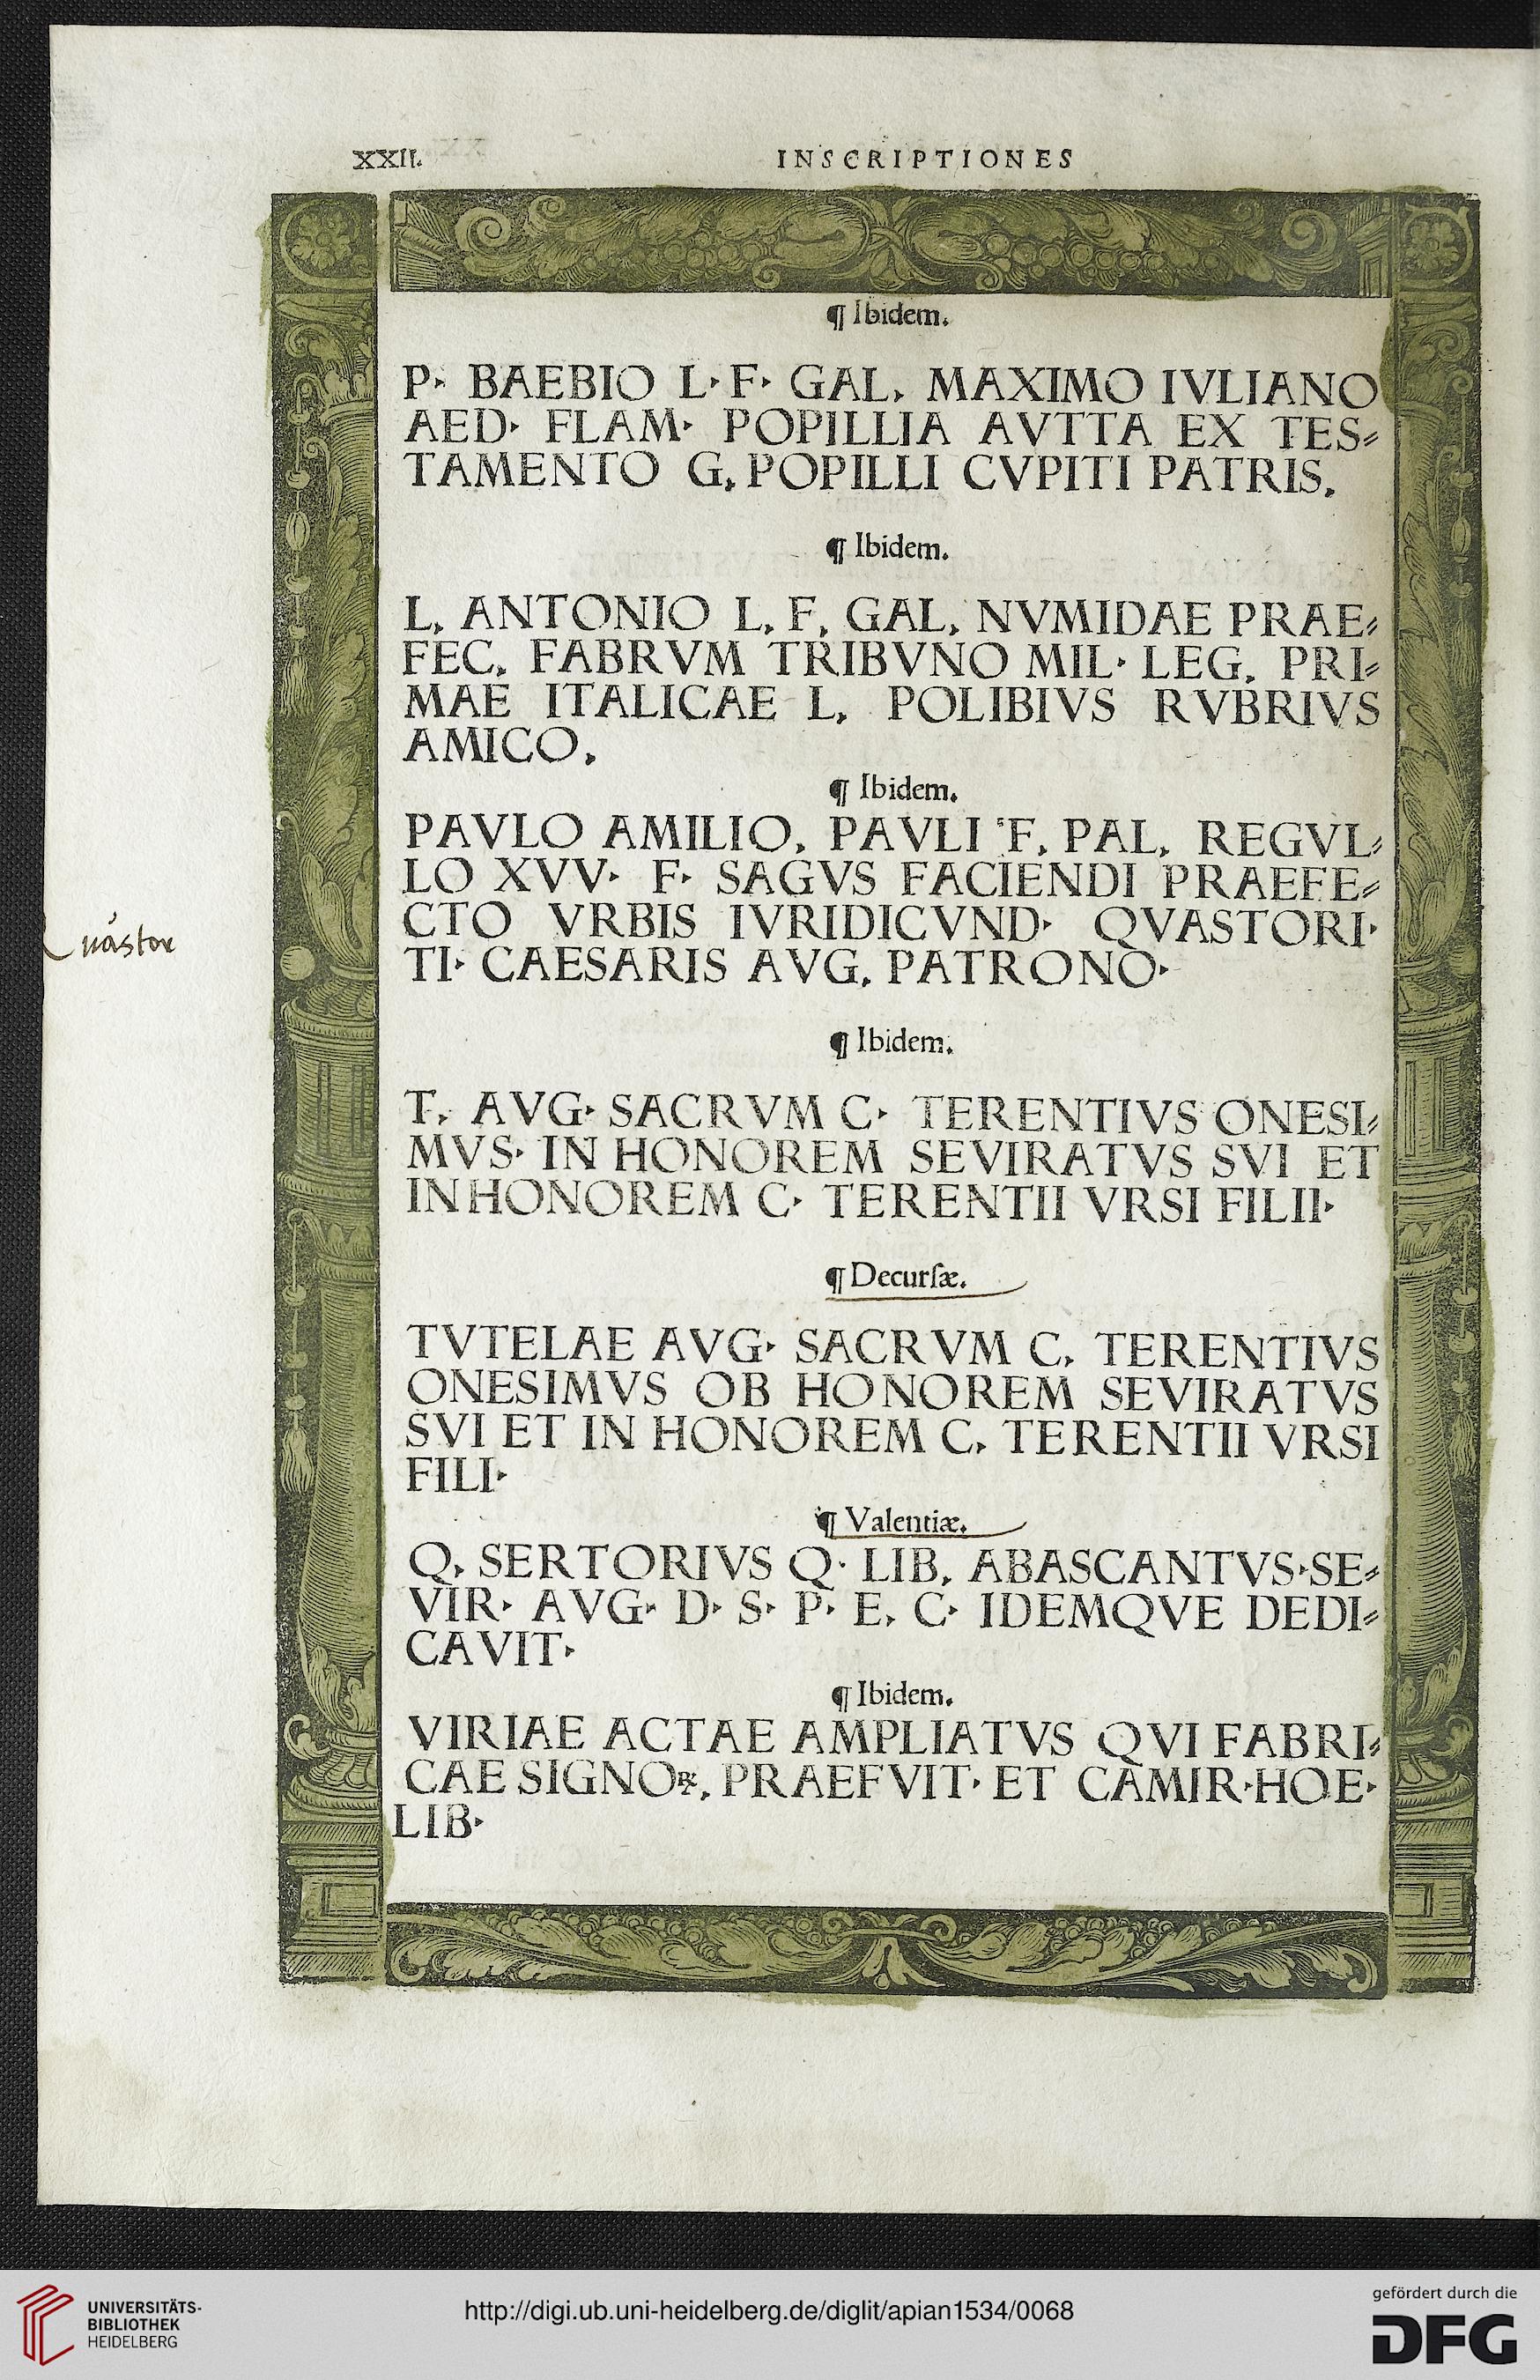 XXII. INSCRIPTIONES
¶ Ibidem.
P· BAEBIO L·F· GAL, MAXIMO IVLIANO
AED· FLAM· POPILLIA AVTTA EX TES⸗
TAMENTO G, POPILLI CVPITI PATRIS,
¶ Ibidem.
L, ANTONIO L, F, GAL, NVMIDAE PRAE⸗
FEC, FABRVM TRIBVNO MIL· LEG, PRI⸗
MAE ITALICAE L, POLIBIVS RVBRIVS
AMICO,
¶ Ibidem.
PAVLO AMILIO, PAVLI F, PAL, REGVL⸗
LO XVV· F· SAGVS FACIENDI PRAEFE⸗
CTO VRBIS IVRIDICVND· QVASTORI·
TI· CAESARIS AVG, PATRONO·
¶ Ibidem.
T, AVG· SACRVM C· TERENTIVS ONESI⸗
MVS· IN HONOREM SEVIRATVS SVI ET
IN HONOREM C· TERENTII VRSI FILII·
¶ Decursæ.
TVTELAE AVG· SACRVM C, TERENTIVS
ONESIMVS OB HONOREM SEVIRATVS
SVI ET IN HONOREM C, TERENTII VRSI
FILI·
¶ Valentiæ.
Q, SERTORIVS Q· LIB, ABASCANTVS·SE⸗
VIR· AVG· D· S· P· E, C· IDEMQVE DEDI⸗
CAVIT·
¶ Ibidem.
VIRIAE ACTAE AMPLIATVS QVI FABRI⸗
CAE SIGNOꝝ, PRAEFVIT· ET CAMIR·HOE·
LIB·
UNIVERSITÄTS-
BIBLIOTHEK
HEIDELBERG
http://digi.ub.uni-heidelberg.de/diglit/apian1534/0068
gefördert durch die
DFG